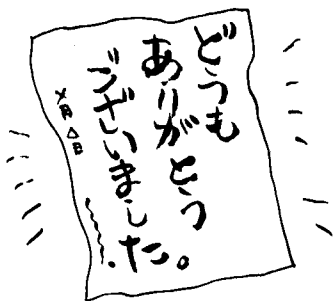 どうも
ありがとう
ございました。
×月△日